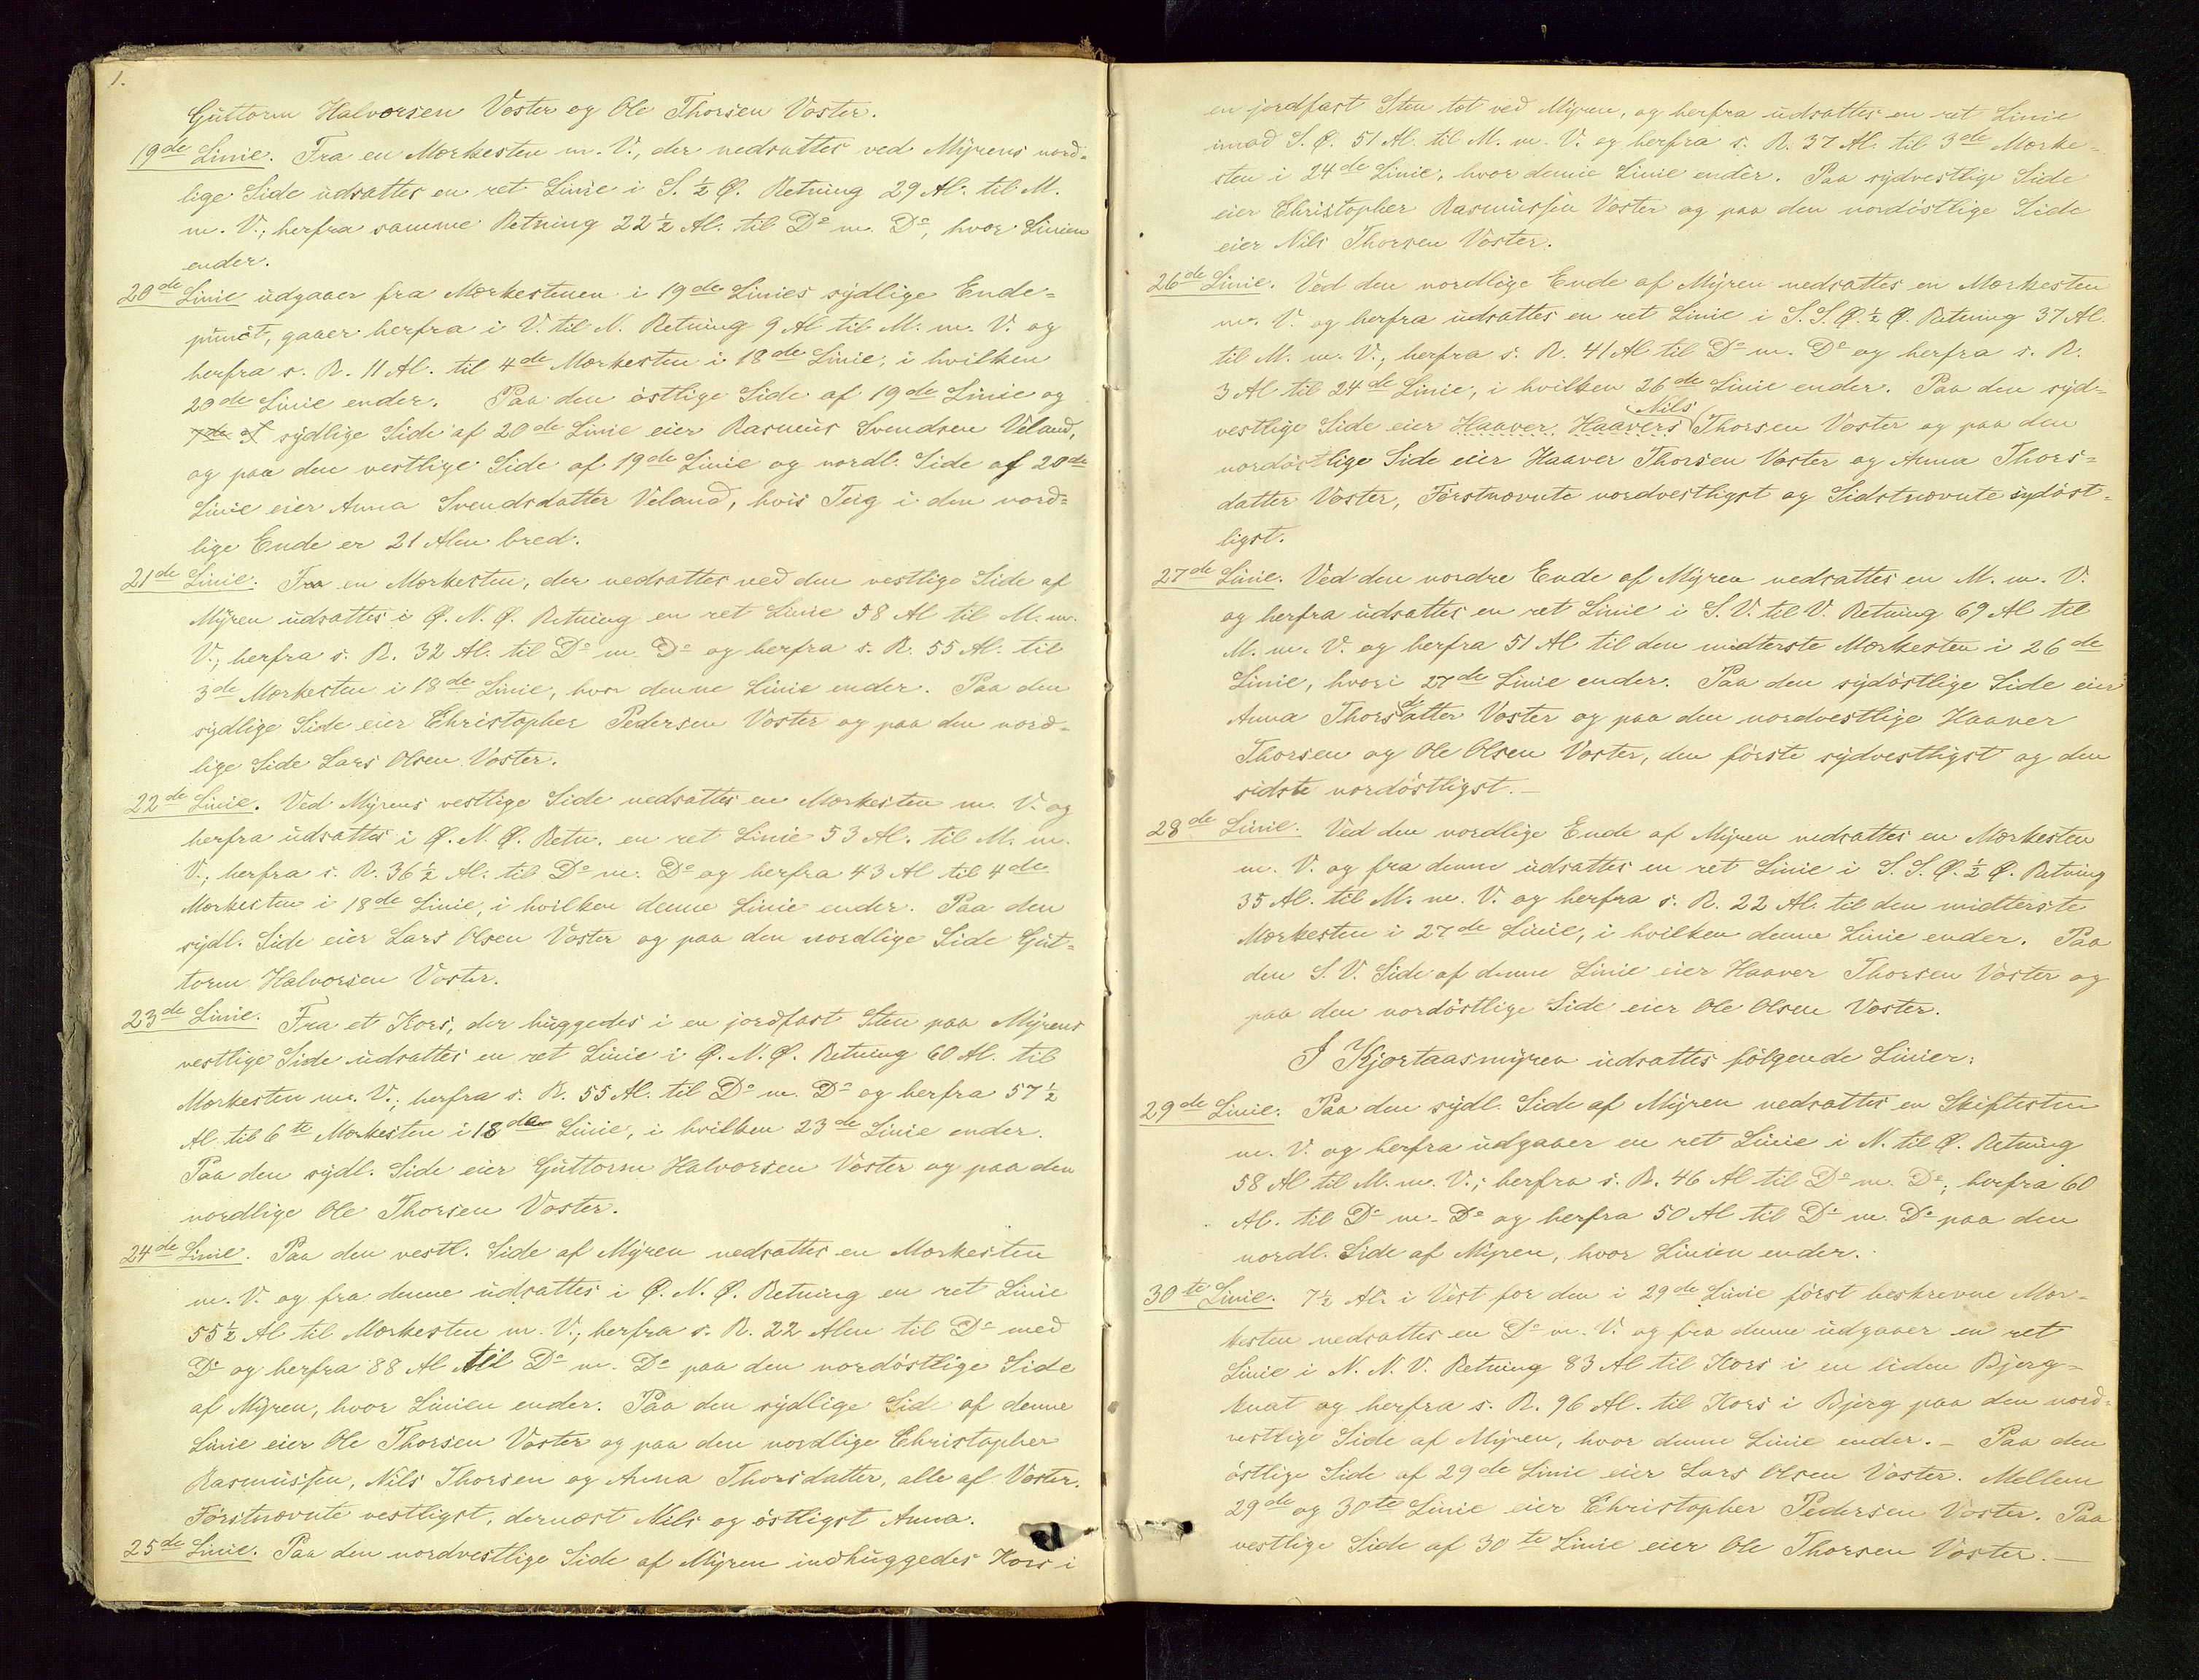 1.
Guttorm Halvorsen Voster og Ole Thorsen Voster.
19de Linie. Fra en Mærkesten m. V., der nedsattes ved Myrens nord-
lige Side udsattes en ret Linie i S. ½ Ø. Retning 29 Al. til M.
m. V.; herfra samme Retning 22 ½ Al. til Do m. Do, hvor Linien
ender.
20de Linie udgaaer fra Mærkestenen i 19de Linies sydlige Ende-
punct, gaaer herfra i V. til N. Retning 9 Al til M. m. V. og
herfra s. R. 11 Al. til 4de Mærkesten i 18de Linie, i hvilken
20de Linie ender. Paa den östlige Side af 19de Linie og
sydlige Side af 20de Linie eier Rasmus Svendsen Veland,
og paa den vestlige Side af 19de Linie og nordl. Side af 20de
Linie eier Anna Svendsdatter Veland, hvis Teig i den nord-
lige Ende er 21 Alen bred.
21de Linie. Fra en Mærkesten, der nedsattes ved den vestlige Side af
Myren udsattes i Ø. N. Ø. Retning en ret Linie 58 Al til M. m.
V.; herfra s. R. 32 Al. til Do m Do og herfra s. R. 55 Al. til
3de Mærkesten i 18de Linie, hvor denne Linie ender. Paa den
sydlige Side eier Christopher Pedersen Voster og paa den nord-
lige Side Lars Olsen Voster.
22de Linie. Ved Myrens vestlige Side nedsattes en Mærkesten m. V. og
herfra udsattes i Ø. N. Ø. Retn. en ret Linie 53 Al. til M. m.
V.; herfra s. R. 36 ½ Al. til Do m. Do og herfra 43 Al til 4de
Mærkesten i 18de Linie, i hvilken denne Linie ender. Paa den
sydl. Side eier Lars Olsen Voster og paa den nordlige Side Gut-
torm Halvorsen Voster.
23de Linie. Fra et Kors, der huggedes i en jordfast Sten paa Myrens
vestlige Side udsattes en ret Linie i Ø. N. Ø. Retning 60 Al. til
Mærkesten m. V.; herfra s. R. 55 Al. til Do m. Do og herfra 57 ½
Al. til 6te Mærkesten i 18de Linie, i hvilken 23de Linie ender.
Paa den sydl. Side eier Guttorm Halvorsen Voster og paa den
nordlige Ole Thorsen Voster.
24de Linie. Paa den vestl. Side af Myren nedsattes en Mærkesten
m. V. og fra denne udsattes i Ø. N. Ø. Retning en ret Linie
55 ½ Al til Mærkesten m. V.; herfra s. R. 22 Alen til Do med
Do og herfra 88 Al til Do m. Do paa den nordöstlige Side
af Myren, hvor Linien ender. Paa den sydlige Side af denne
Linie eier Ole Thorsen Voster og paa den nordlige Christopher
Rasmussen, Nils Thorsen og Anna Thorsdatter, alle af Voster.
Förstnævnte vestligst, dernæst Nils og östligst Anna.
25de Linie. Paa den nordvestlige Side af Myren indhuggedes Kors i
en jordfast Sten tæt ved Myren, og herfra udsattes en ret Linie
imod S. Ø. 51 Al. til M. m. V. og herfra s. R. 37 Al. til 3de Mærke-
sten i 24de Linie, hvor denne Linie ender. Paa sydvestlige Side
eier Christopher Rasmussen Voster og paa den nordöstlige Side
eier Nils Thorsen Voster.
26de Linie. Ved den nordlige Ende af Myren nedsattes en Mærkesten
m. V. og herfra udsattes en ret Linie i S. S. Ø. ½ Ø. Retning 37 Al.
til M. m. V.; herfra s. R. 41 Al til Do m. Do og herfra s. R.
3 Al til 24de Linie, i hvilken 26de Linie ender. Paa den syd-
vestlige Side eier Haaver Haavers Nils Thorsen Voster og paa den
nordöstlige Side eier Haaver Thorsen Voster og Anna Thors-
datter Voster, Förstnævnte nordvestligst og Sidstnævnte sydöst-
ligst.
27de Linie. Ved den nordre Ende af Myren nedsattes en M. m. V.
og herfra udsattes en ret Linie i S. V. til V. Retning 69 Al til
M. m. V. og herfra 51 Al til den midterste Mærkesten i 26de
Linie, hvori 27de Linie ender. Paa den sydöstlige Side eier
Anna Thorsdatter Voster og paa den nordvestlige Haaver
Thorsen og Ole Olsen Voster, den förste sydvestligst og den
sidste nordöstligst. –
28de Linie. Ved den nordlige Ende af Myren nedsattes en Mærkesten
m. V. og fra denne udsattes en ret Linie i S. S. Ø. ½ Ø. Retning
35 Al. til M. m. V. og herfra s. R. 22 Al. til den midterste
Mærkesten i 27de Linie, i hvilken denne Linie ender. Paa
den S. V. Side af denne Linie eier Haaver Thorsen Voster og
paa den nordöstlige Side eier Ole Olsen Voster.
I Kjortaasmyren udsattes fölgende Linier:
29de Linie. Paa den sydl. Side af Myren nedsattes en Skiftesten
m. V. og herfra udgaaer en ret Linie i N. til Ø. Retning
58 Al til M. m. V.; herfra s. R. 46 Al til Do m. Do; herfra 60
Al. til Do m. Do og herfra 50 Al til Do m. Do paa den
nordl. Side af Myren, hvor Linien ender.
30te Linie. 7½ Al. i Vest for den i 29de Linie först beskrevne Mær-
kesten nedsattes en Do m. V. og fra denne udgaaer en ret
Linie i N. N. V. Retning 83 Al til Kors i en liden Bjerg-
knat og herfra s. R. 96 Al. til Kors i Bjerg paa den nord-
vestlige Side af Myren, hvor denne Linie ender. – Paa den
östlige Side af 29de Linie eier Lars Olsen Voster. Mellem
29de og 30te Linie eier Christopher Pedersen Voster. Paa
vestlige Side af 30te Linie eier Ole Thorsen Voster. —